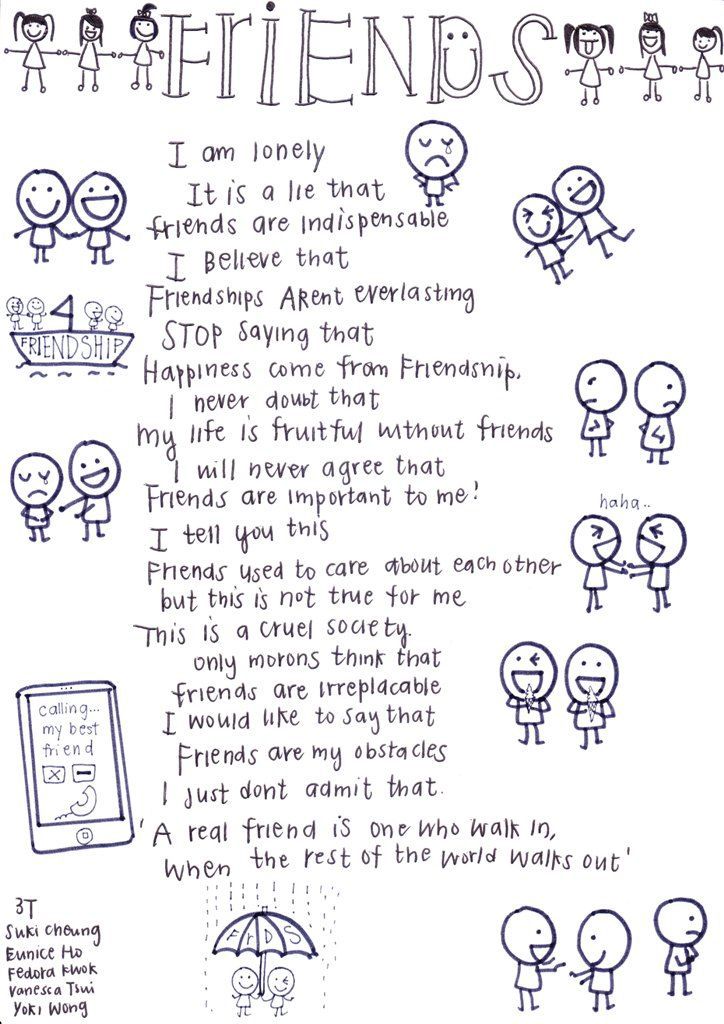 FRIENDS
I am lonely
It is a lie that
friends are indispensable
I Believe that
Friendships ARent everlasting
STOP saying that
Happiness come from Friendship.
I never doubt that
My life is fruitful without friends
I will never agree that
Friends are important to me!
I tell you this
Friends used to care about each other
but this is not true for me
This is a cruel society.
only morons think that
friends are irreplacable
I would like to say that
Friends are my obstacles
I just dont admit that.
'A real friend is one who walk in,
when the rest of the world walks out'
FRIENDSHIP
haha..
calling...
my best
friend
3T
Suki Cheung
Eunice Ho
Fedora Kwok
Vanessa Tsui
Yoki Wong
FrDS